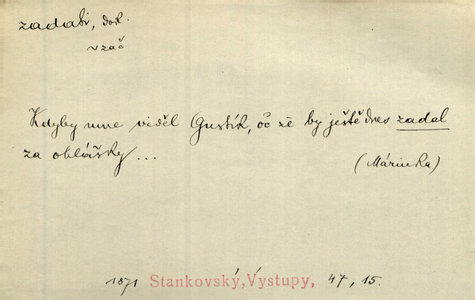 zadati, dok.
več
Kdyby mne viděl Gustík, oč že by ještě dnes zadal
za oblásky ...
(Márinka)
1871 Stankovský, Výstupy, 47, 15.